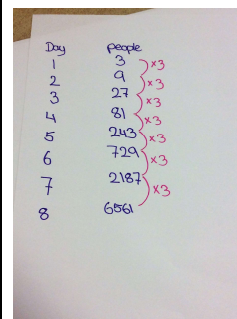 Day people
1 3
×3
2 9
×3
3 27
×3
4 81
×3
5 243
×3
6 729
×3
7 2187
×3
8 6561